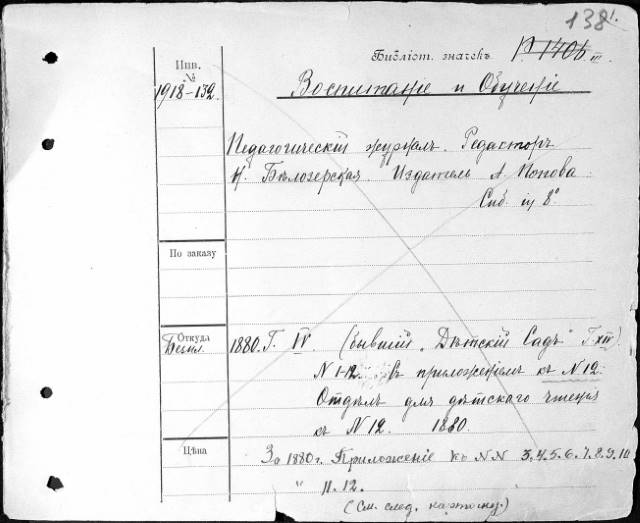 138¹.
Инв. №
1918-132.
Библіот. значекъ P. 1406 III
Воспитаніе и Обученіе
Педагогическій журналъ. Редакторъ
Н. Бѣлозерская. Издатель А. Попова
Спб. in 8°
По заказу
Откуда
Безпл.
1880. Г. IV. (бывшій „Дѣтскій Садъ" Г. XIV).
N 1-12. съ приложеніемъ къ N 12.
Отдѣлъ для дѣтскаго чтенія
къ N 12. 1880.
Цѣна
За 1880 г. Приложеніе къ NN 3.4.5.6.7.8.9.10
" 11.12.
(См. след. карточку.)